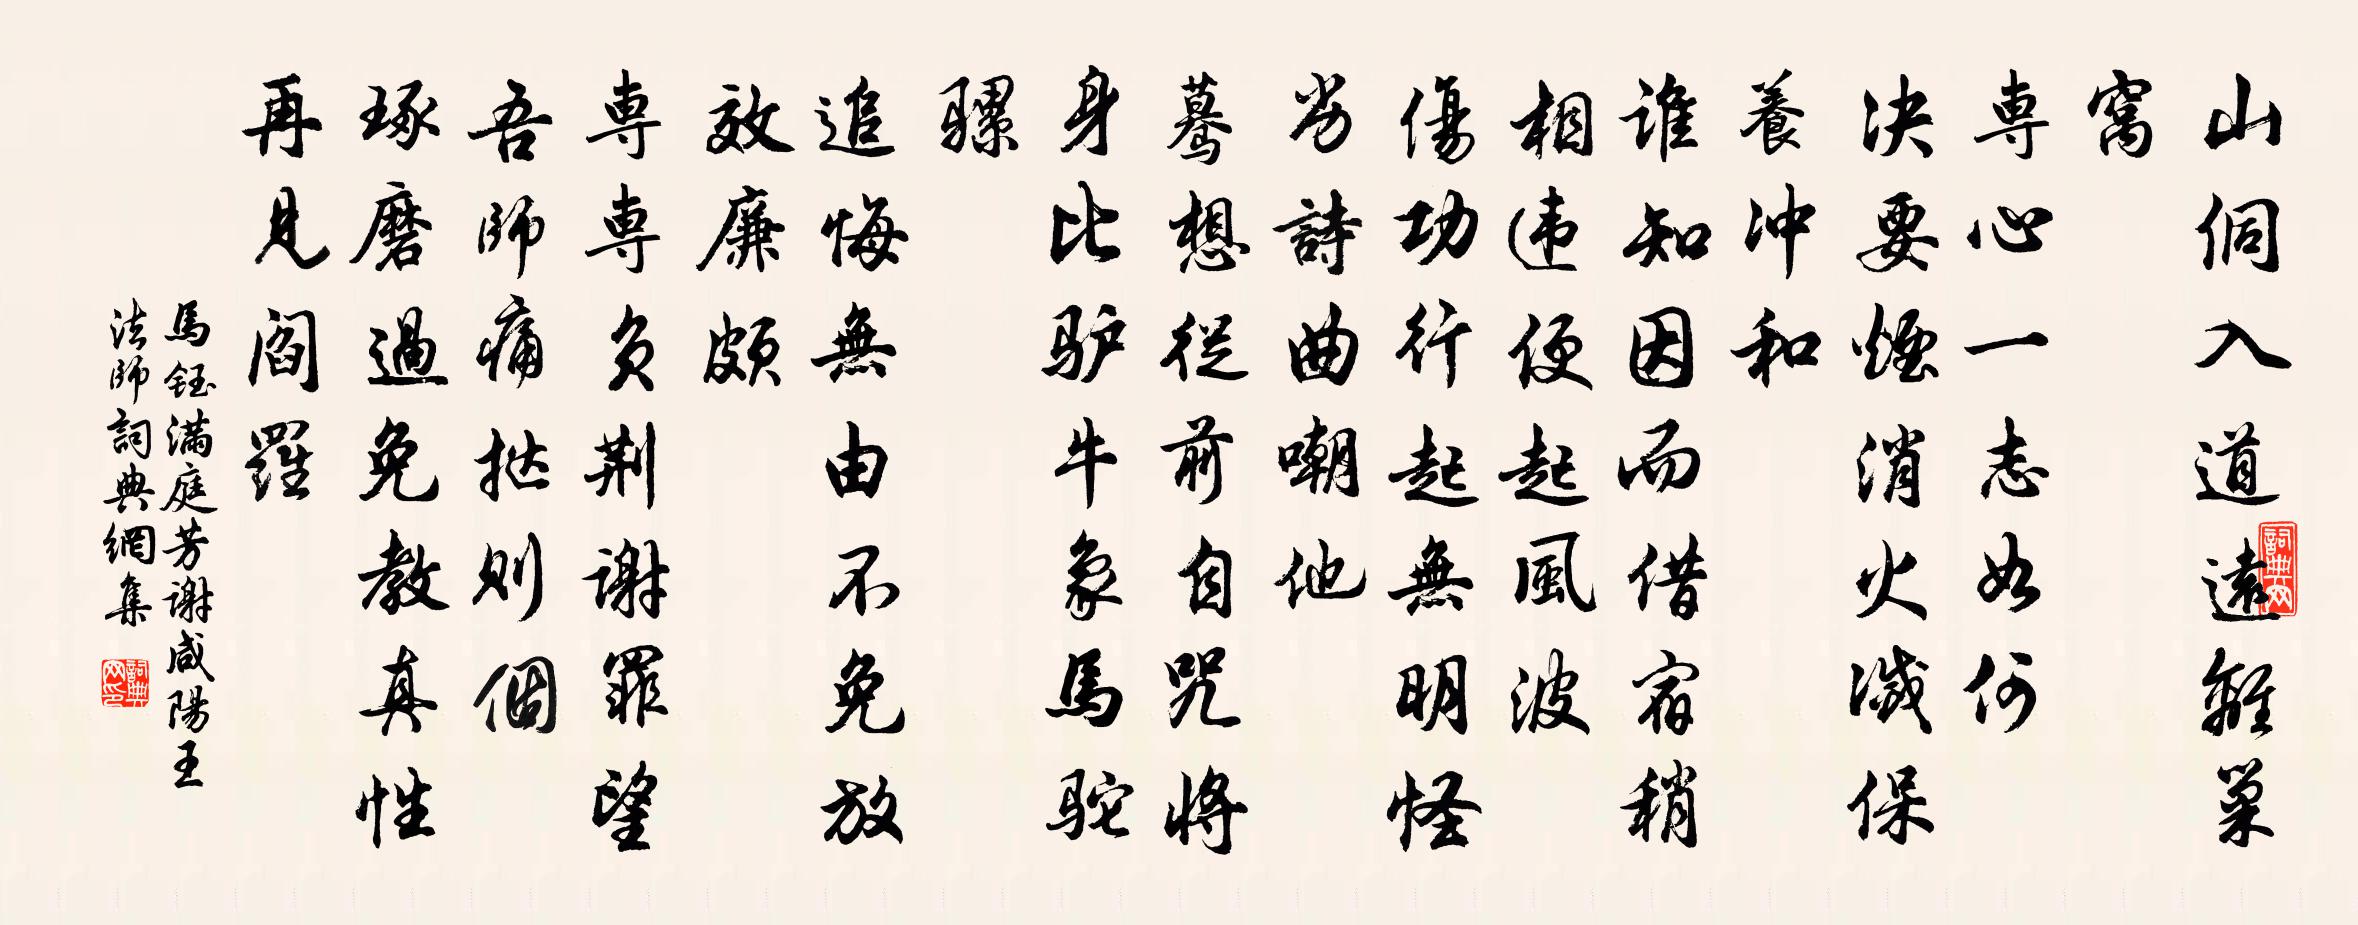 山侗入道遠離巢
窩
専心一志如何
决要煙消火滅保
養冲和
誰知因而借宿稍
相违便起風波
傷功行起無明怪
劣詩曲嘲他
驀想從前自咒將
身比驴牛象馬驼
骡
追悔無由不免放
效廉頗
専専负荆謝罪望
吾師痛挞則個
琢磨過免教真性
再見閻羅
馬鈺满庭芳謝咸陽王
法師詞典網集
詞典网
詞典网印